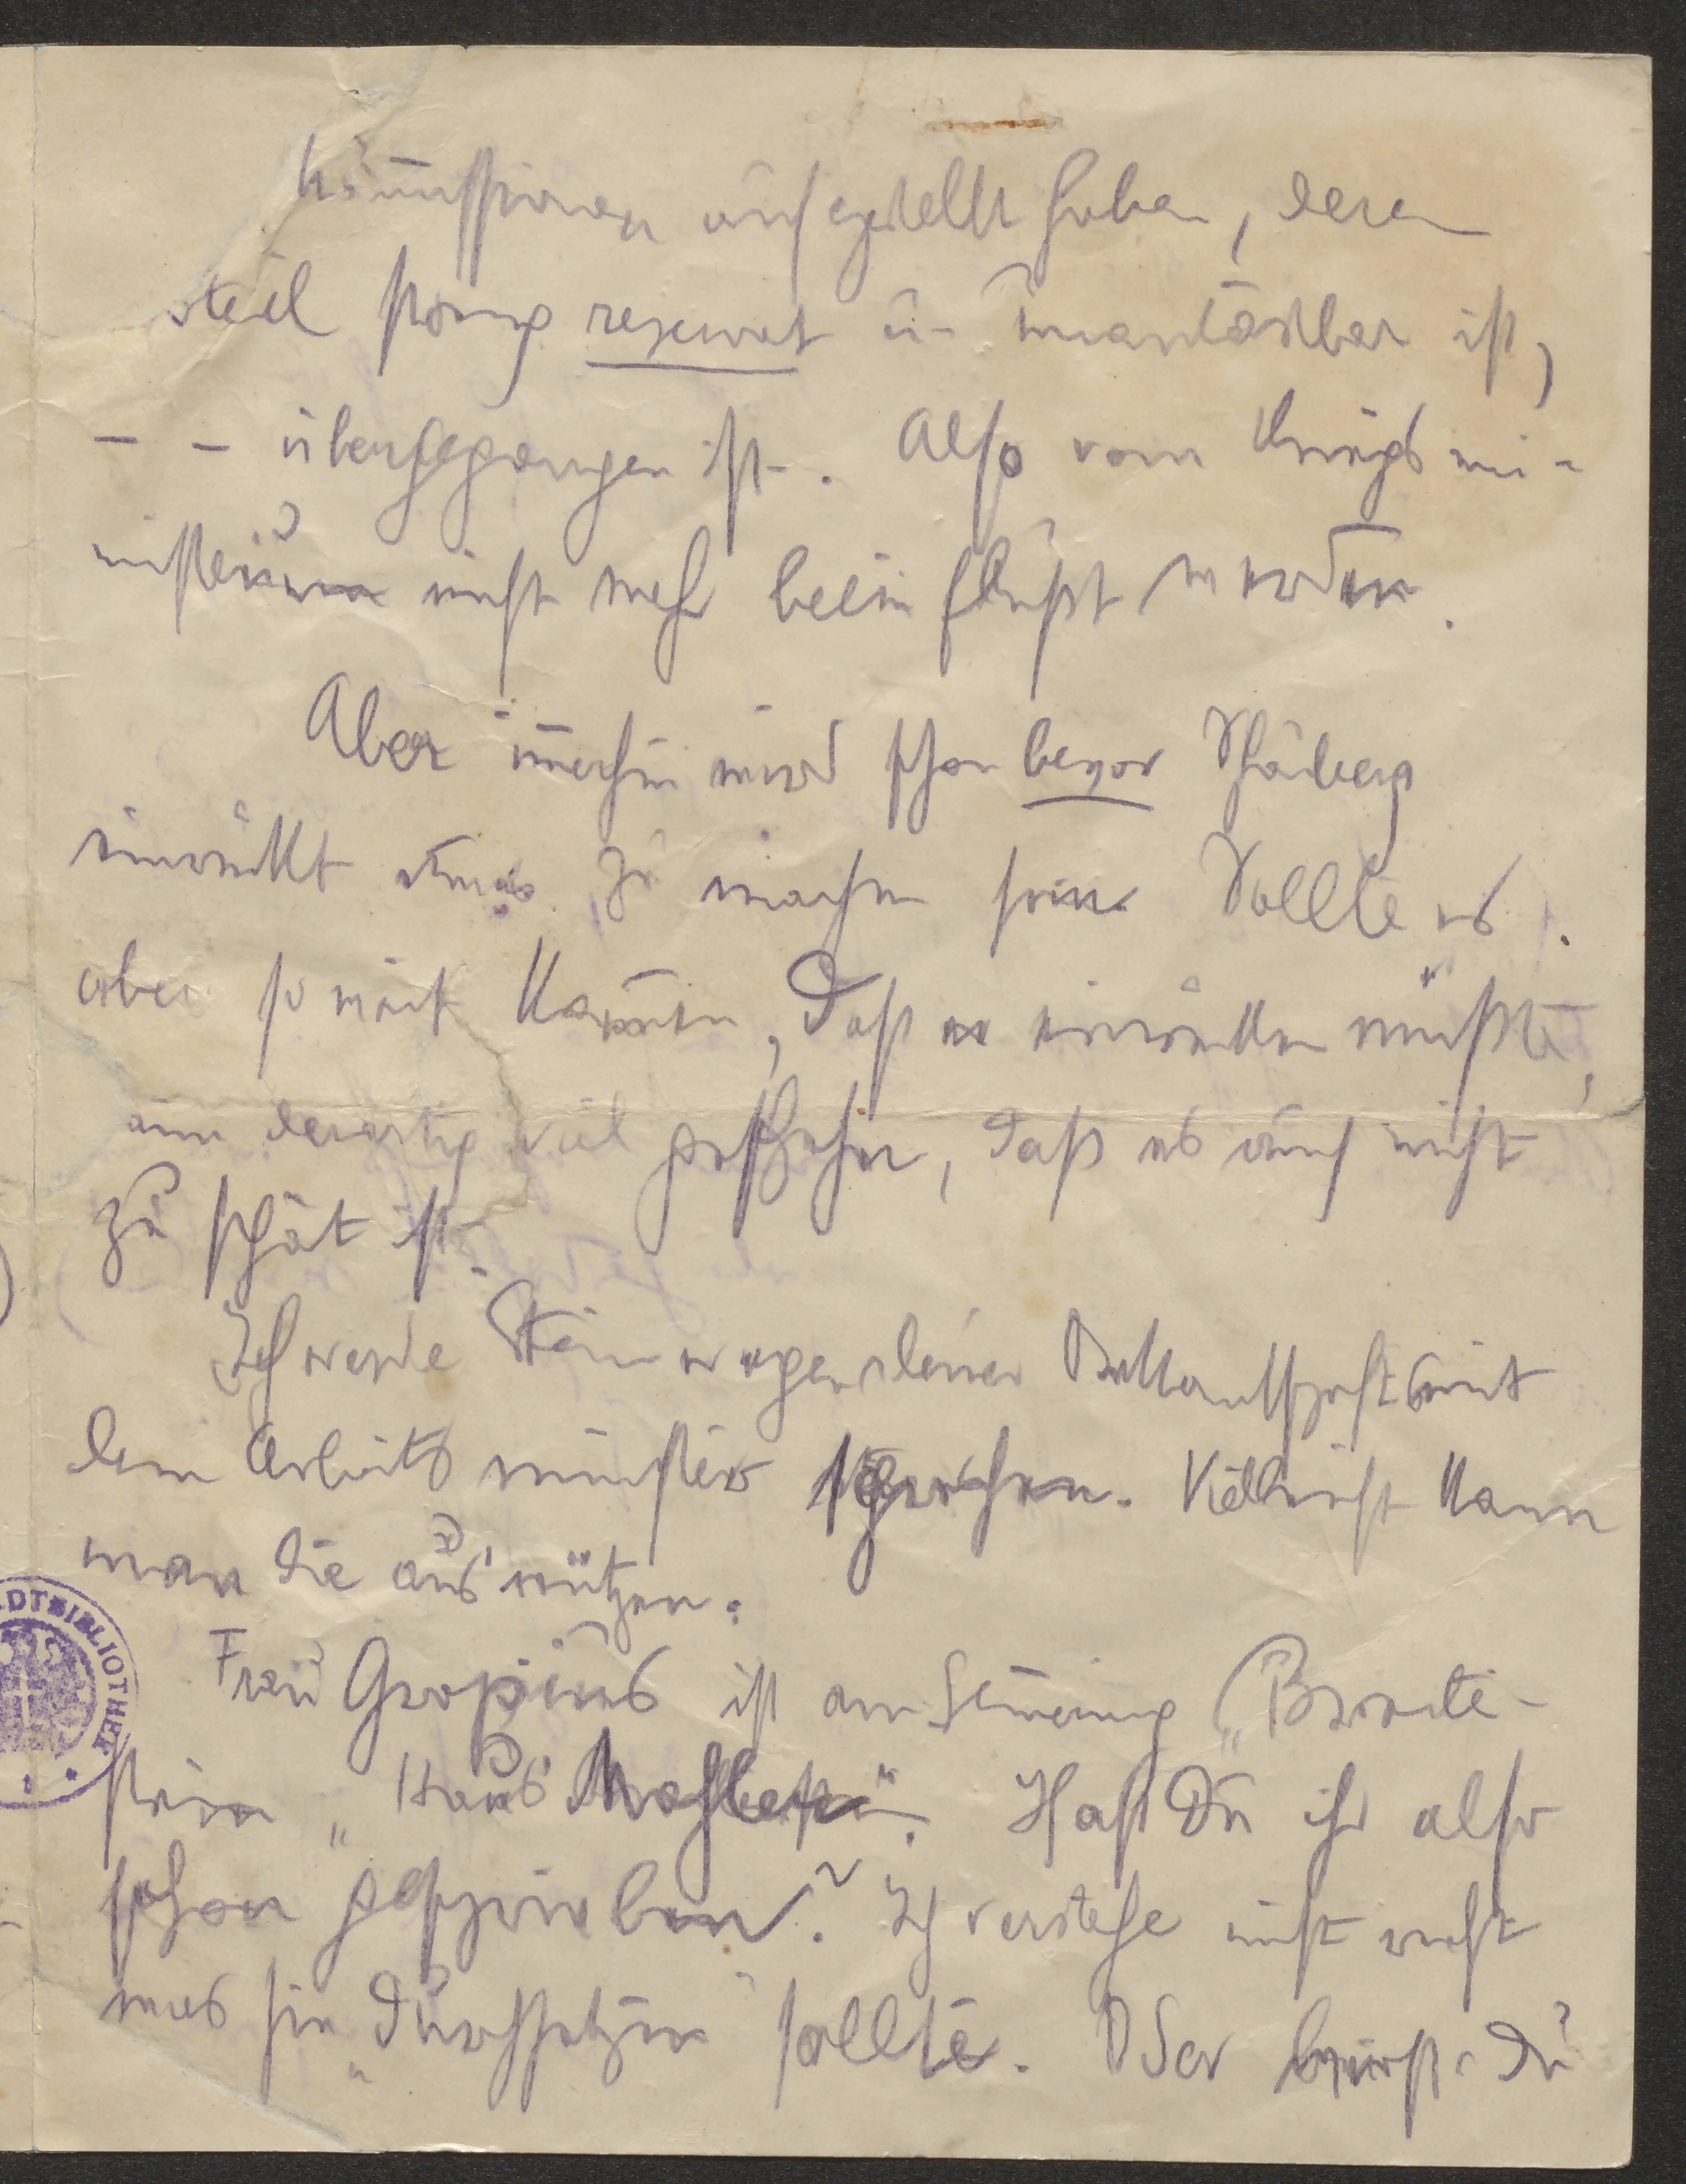 Kom̅issionen aufgestellt haben, deren
Urteil streng reservat u- unantastbar ist,
– – übergegangen ist. Also vom Kriegsmi-
nisterium nicht mehr beeinflußt werden.
Aber im̅erhin wird schon bevor Schönberg
einrückt etwas zu machen sein. Sollte es
aber so weit kommen, daß er einrücken müßte,
kann derartig viel geschehen, daß es auch nicht
zu spät ist.
Ich werde Stein wegen deiner Bekanntschaft mit
dem Arbeitsminister sprechen. Vielleicht kann
man die ausnützen.
Frau Gropius ist am Sem̅ering "Breiten-
stein" "Haus Mahler". Hast Du ihr also
schon geschrieben? Ich verstehe nicht recht
was sie "durchsetzen" sollte. Oder Du
STADTBIBLIOTHEK